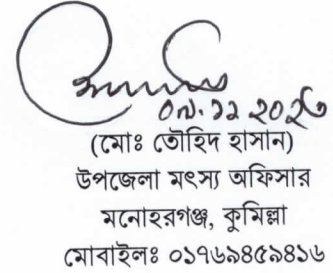 (মোঃ তৌহিদ হাসান)
উপজেলা মৎস্য অফিসার
মনোহরগঞ্জ, কুমিল্লা
মোবাইলঃ ০১৭৬৯৪৫৯৪১৬